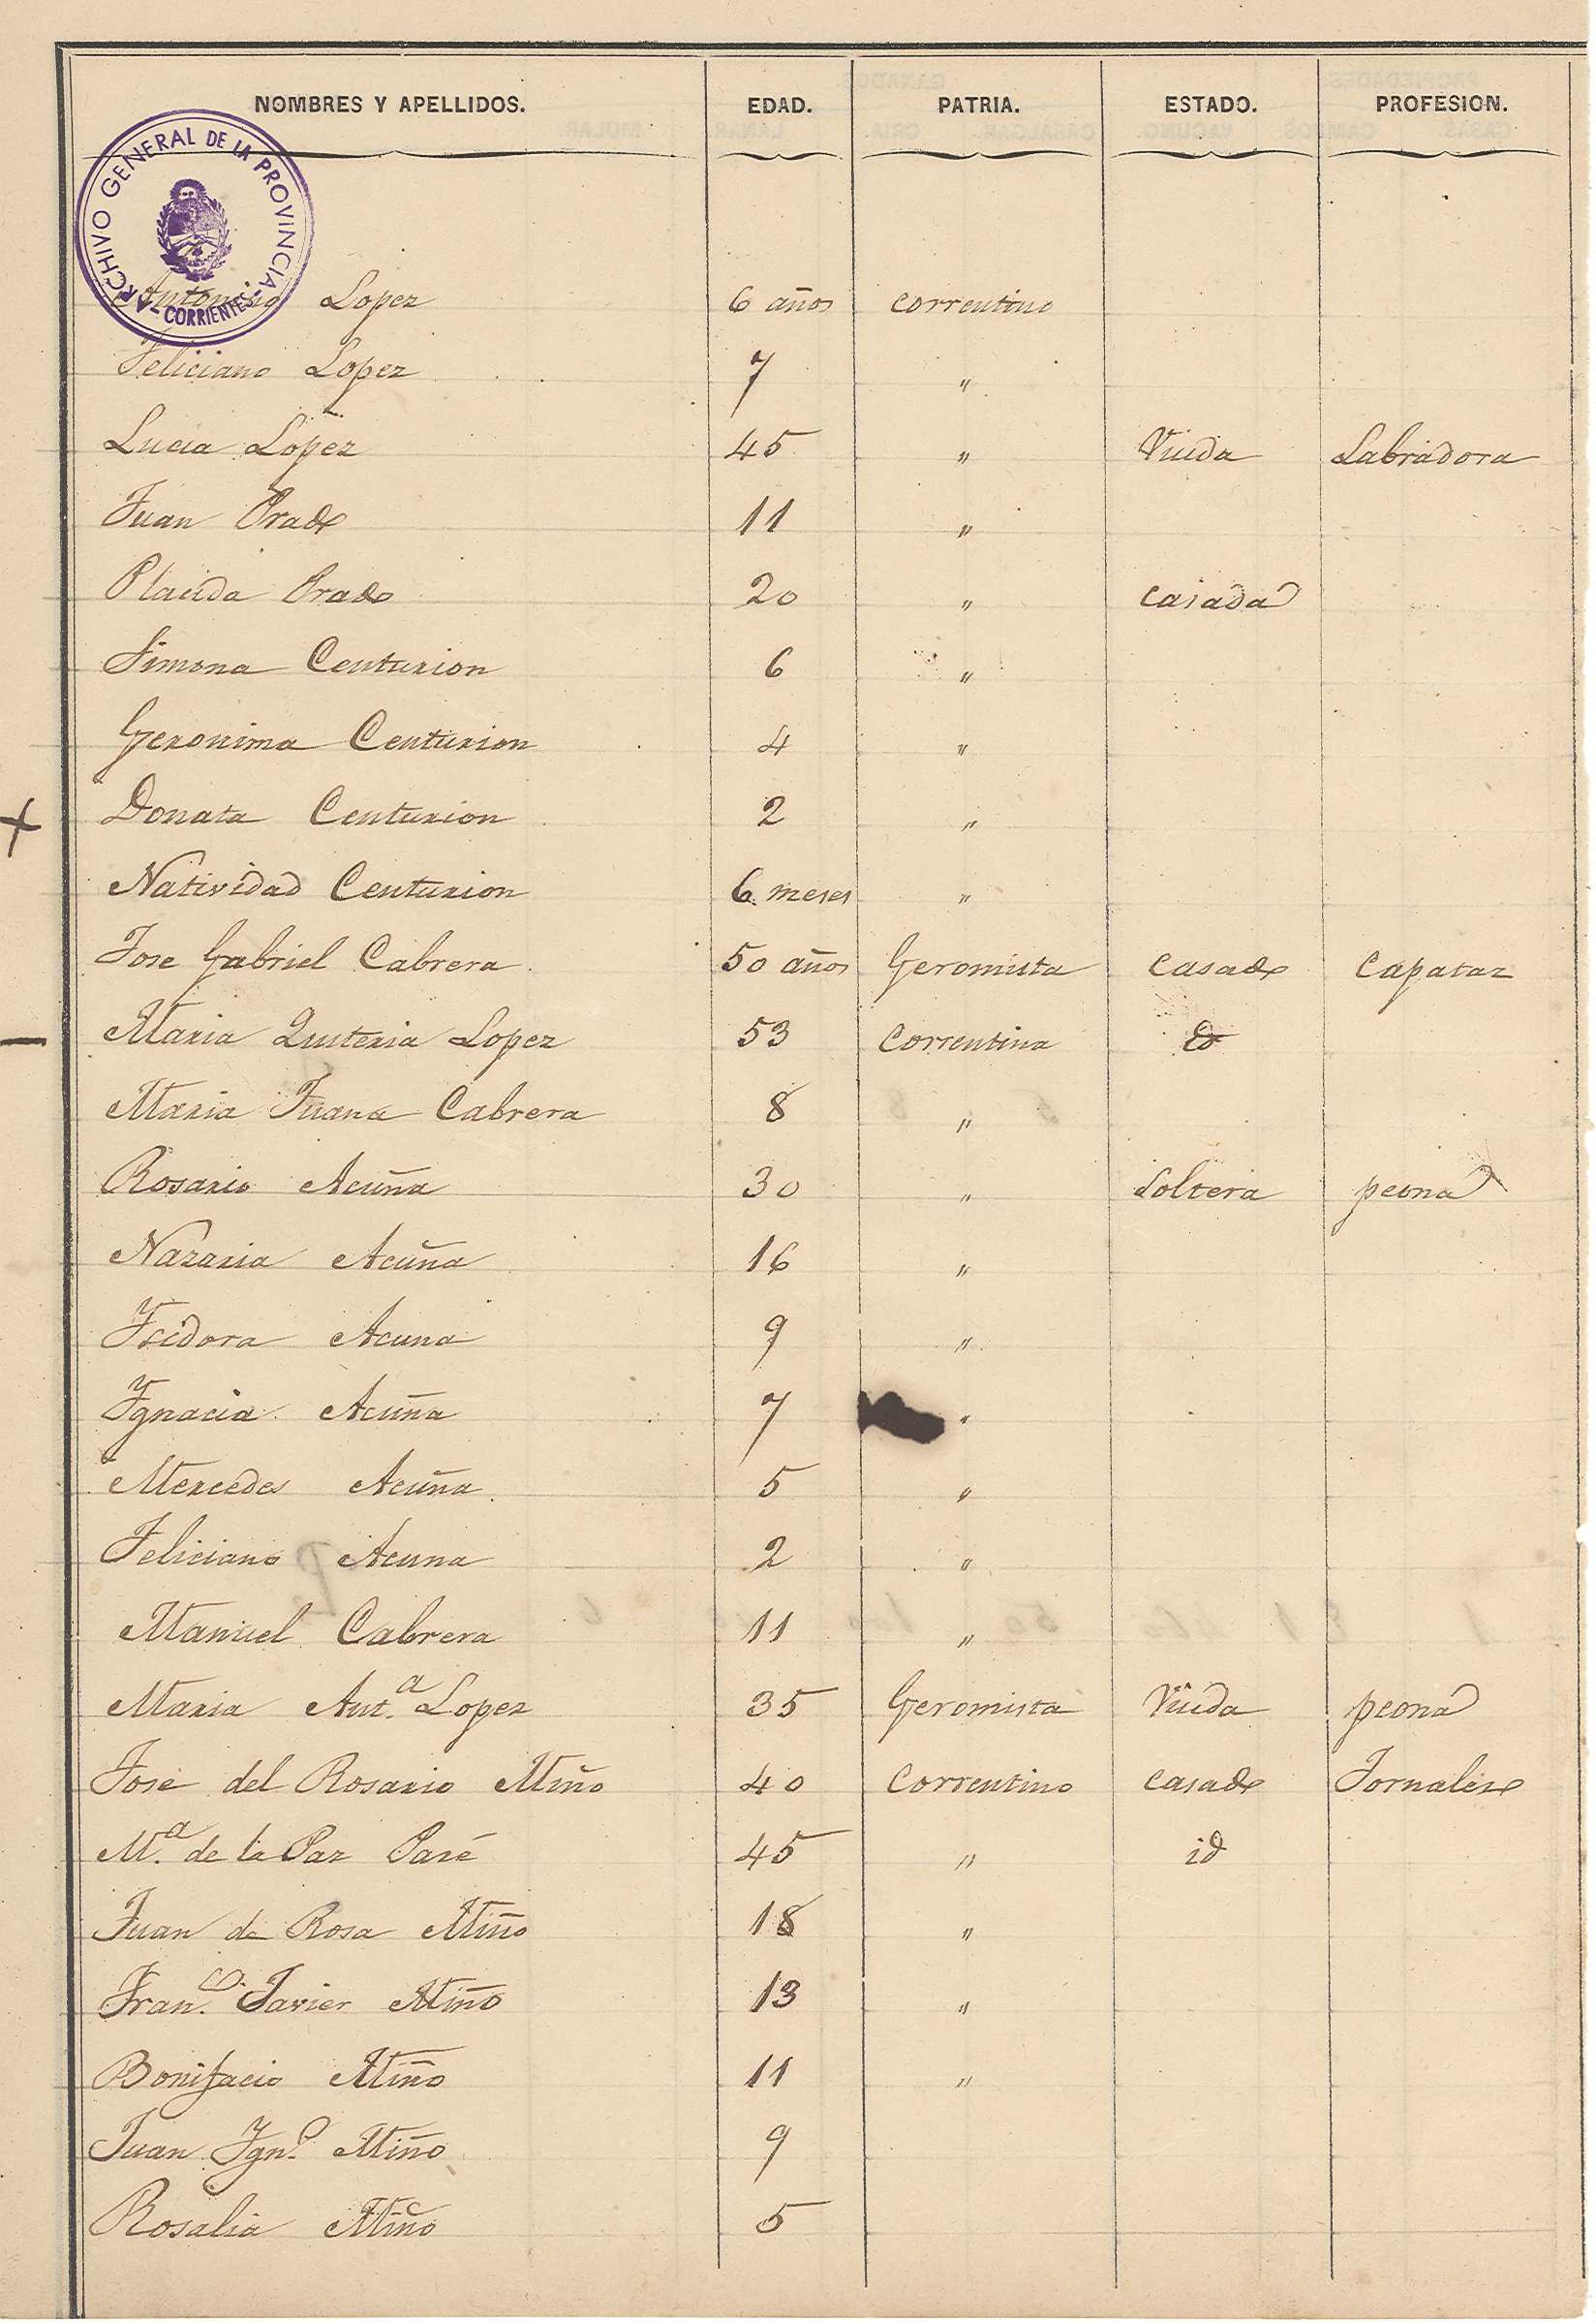 NOMBRES Y APELLIDOS. EDAD. PATRIA. ESTADO. PROFESION.
ARCHIVO GENERAL DE LA PROVINCIA - CORRIENTES -
Antonino Lopez 6 años correntino
Feliciano Lopez 7 "
Lucia Lopez 45 " Viuda Labradora
Juan Prado 11 "
Placida Prado 20 " casada
Simona Centurion 6 "
Geronima Centurion 4 "
+ Donata Centurion 2 "
Natividad Centurion 6 meses "
Jose Gabriel Cabrera 50 años Geromista casado capataz
— Maria Quiteria Lopez 53 Correntina id
Maria Juana Cabrera 8 "
Rosario Acuña 30 " Soltera peona
Nazaria Acuña 16 "
Isidora Acuna 9 "
Ygnacia Acuña 7 "
Mercedes Acuña 5 "
Feliciano Acuna 2 "
Manuel Cabrera 11 "
Maria Ant.a Lopez 35 Geromista Viuda peona
Jose del Rosario Miño 40 Correntino casado Jornalero
M.a de la Paz Paré 45 " id
Juan de Rosa Miño 18 "
Fran.co Javier Miño 13 "
Bonifacio Miño 11 "
Juan Ygn.o Miño 9
Rosalia Miño 5